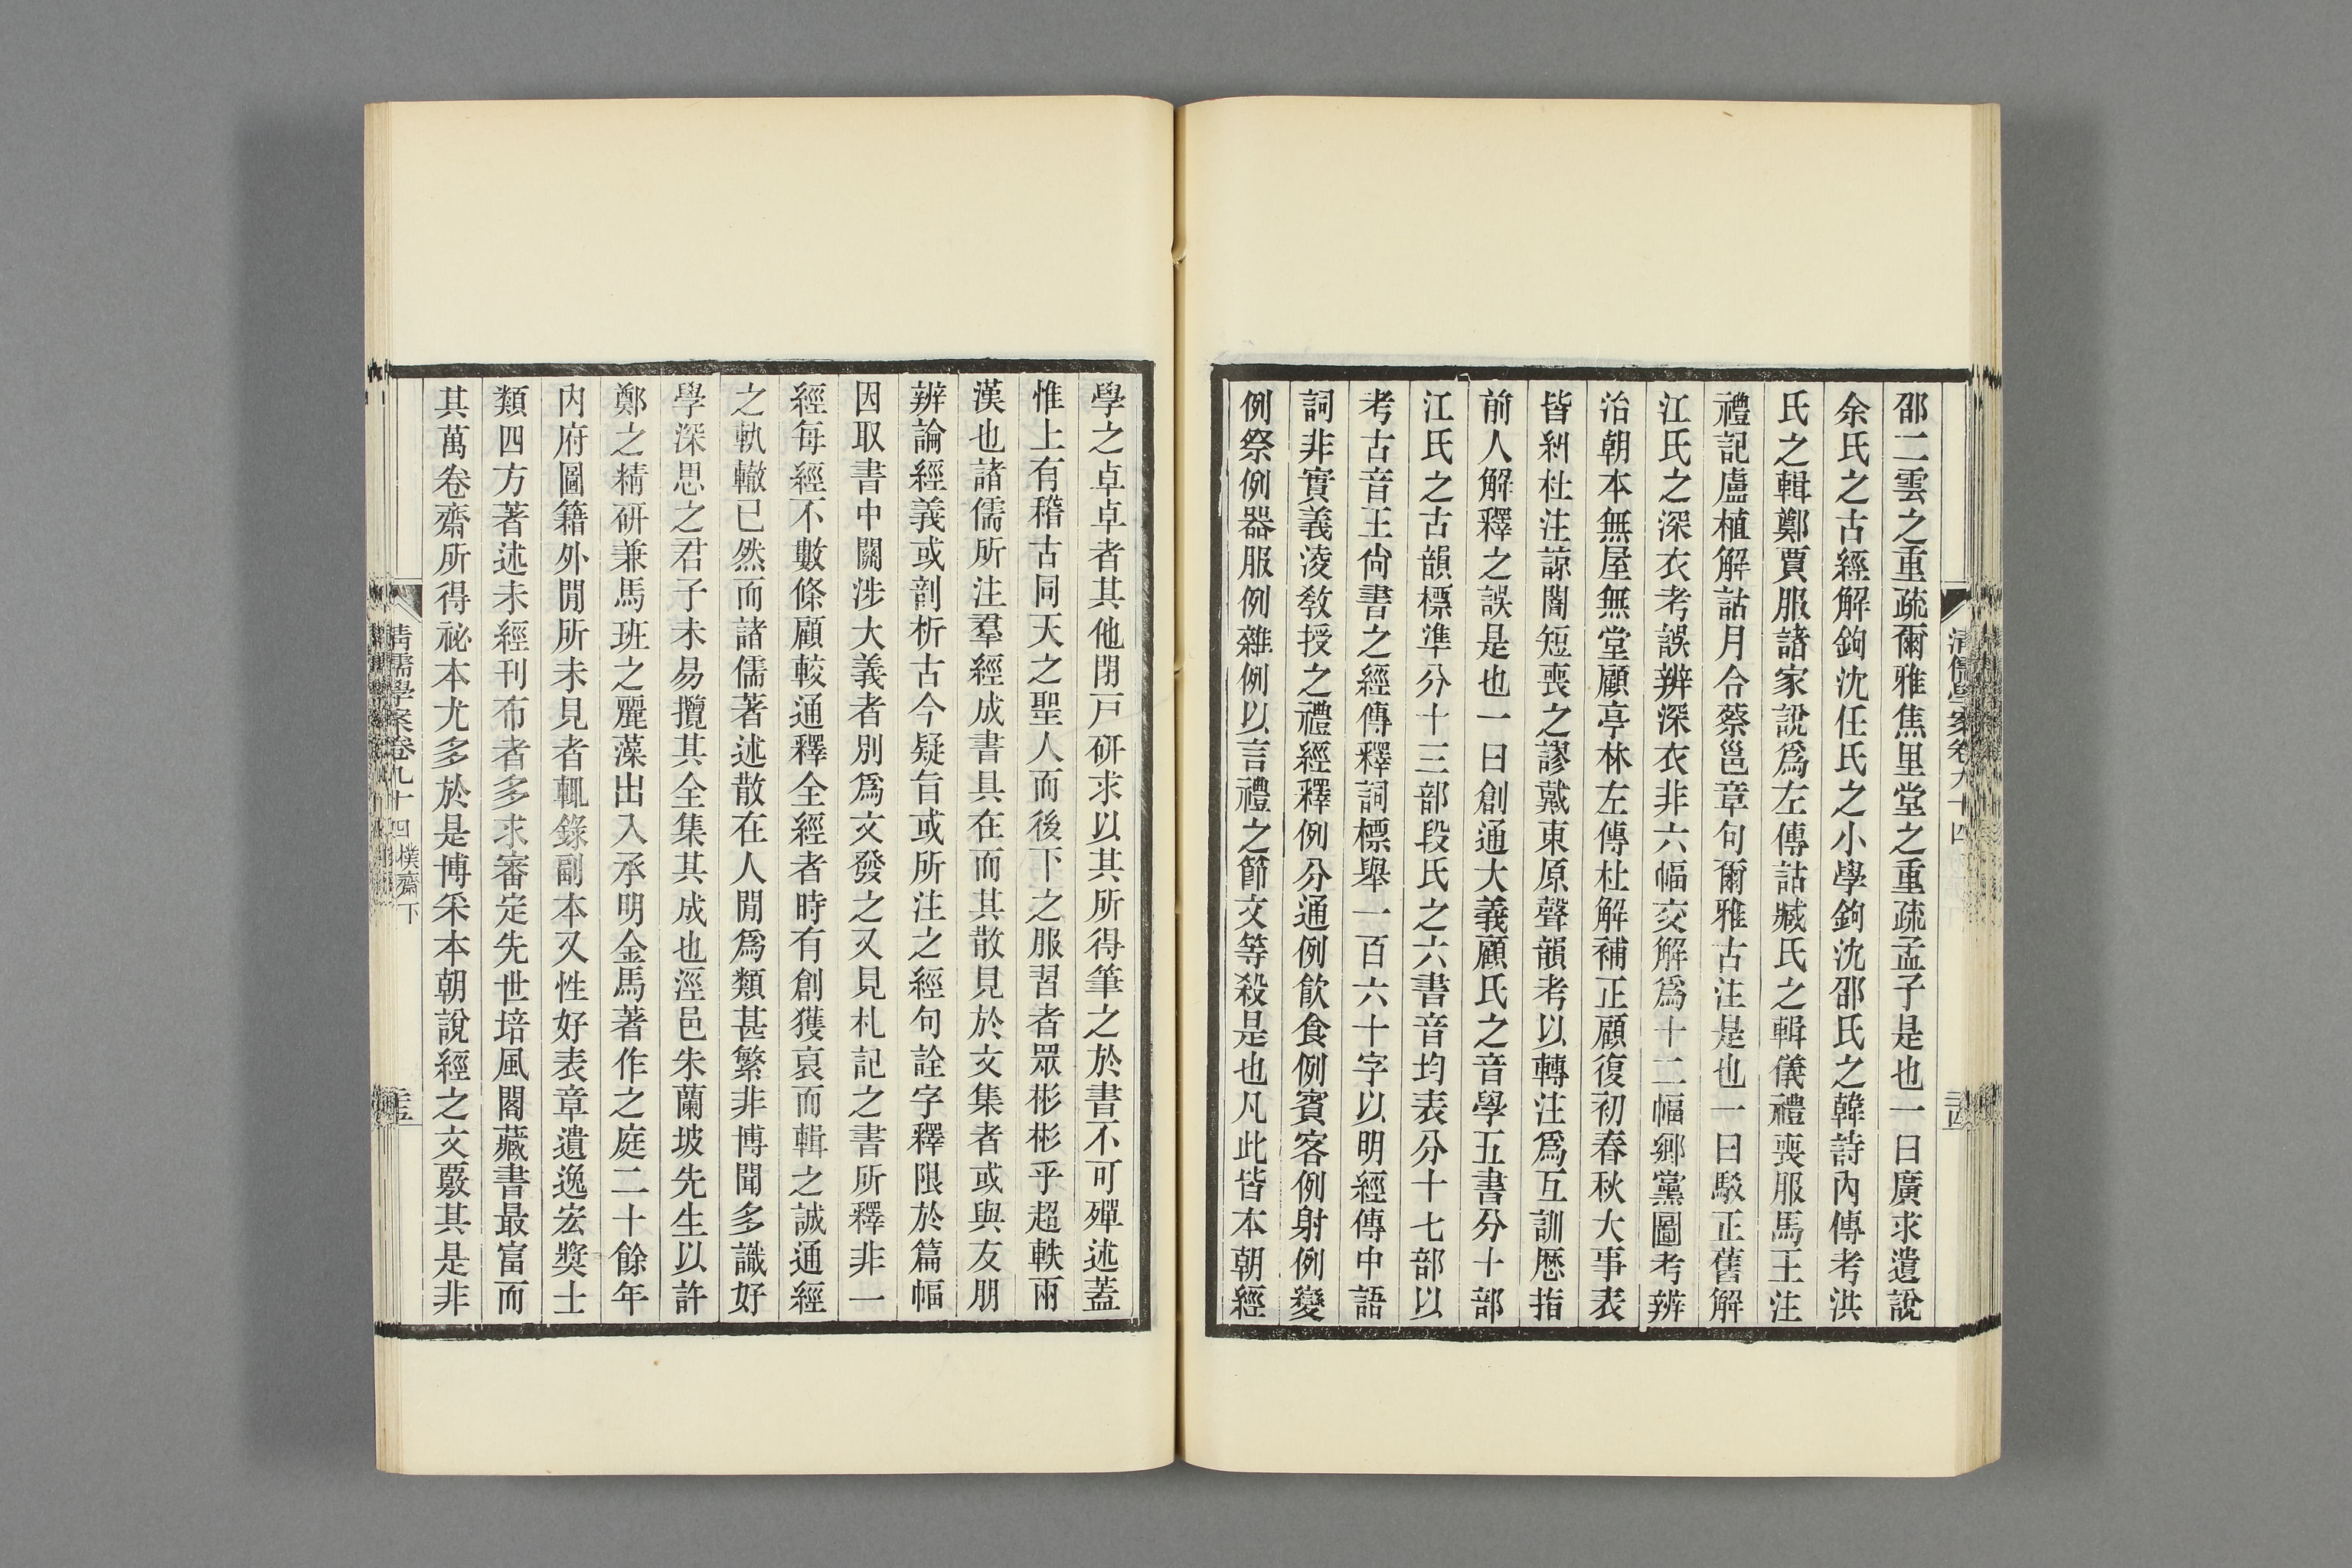 邵二雲之重疏爾雅焦里堂之重疏孟子是也一曰廣求遺說
余氏之古經解鉤沈任氏之小學鉤沈邵氏之韓詩內傳考洪
氏之輯鄭賈服諸家說爲左傳詁臧氏之輯儀禮喪服馬王注
禮記盧植解詁月令蔡邕章句爾雅古注是也一曰駁正舊解
江氏之深衣考誤辨深衣非六幅交解爲十二幅鄉黨圖考辨
治朝本無屋無堂顧亭林左傳杜解補正顧復初春秋大事表
皆糾杜注諒闇短喪之謬戴東原聲韻考以轉注爲互訓歷指
前人解釋之誤是也一曰創通大義顧氏之音學五書分十部
江氏之古韻標準分十三部段氏之六書音均表分十七部以
考古音王尙書之經傳釋詞標舉一百六十字以明經傳中語
詞非實義淩敎授之禮經釋例分通例飮食例賓客例射例變
例祭例器服例雜例以言禮之節文等殺是也凡此皆本朝經
清儒學案卷九十四
三四
學之卓卓者其他閉戶硏求以其所得筆之於書不可殫述蓋
惟上有稽古同天之聖人而後下之服習者眾彬彬乎超軼兩
漢也諸儒所注羣經成書具在而其散見於文集者或與友朋
辨論經義或剖析古今疑旨或所注之經句詮字釋限於篇幅
因取書中關涉大義者別爲文發之又見札記之書所釋非一
經每經不數條顧較通釋全經者時有創獲裒而輯之誠通經
之軌轍已然而諸儒著述散在人閒爲類甚繁非博聞多識好
學深思之君子未易攬其全集其成也涇邑朱蘭坡先生以許
鄭之精硏兼馬班之麗藻出入承明金馬著作之庭二十餘年
內府圖籍外閒所未見者輒錄副本又性好表章遺逸宏獎士
類四方著述未經刊布者多求審定先世培風閣藏書最富而
其萬卷齋所得祕本尤多於是博采本朝說經之文覈其是非
清儒學案卷九十四 樸齋下
三五